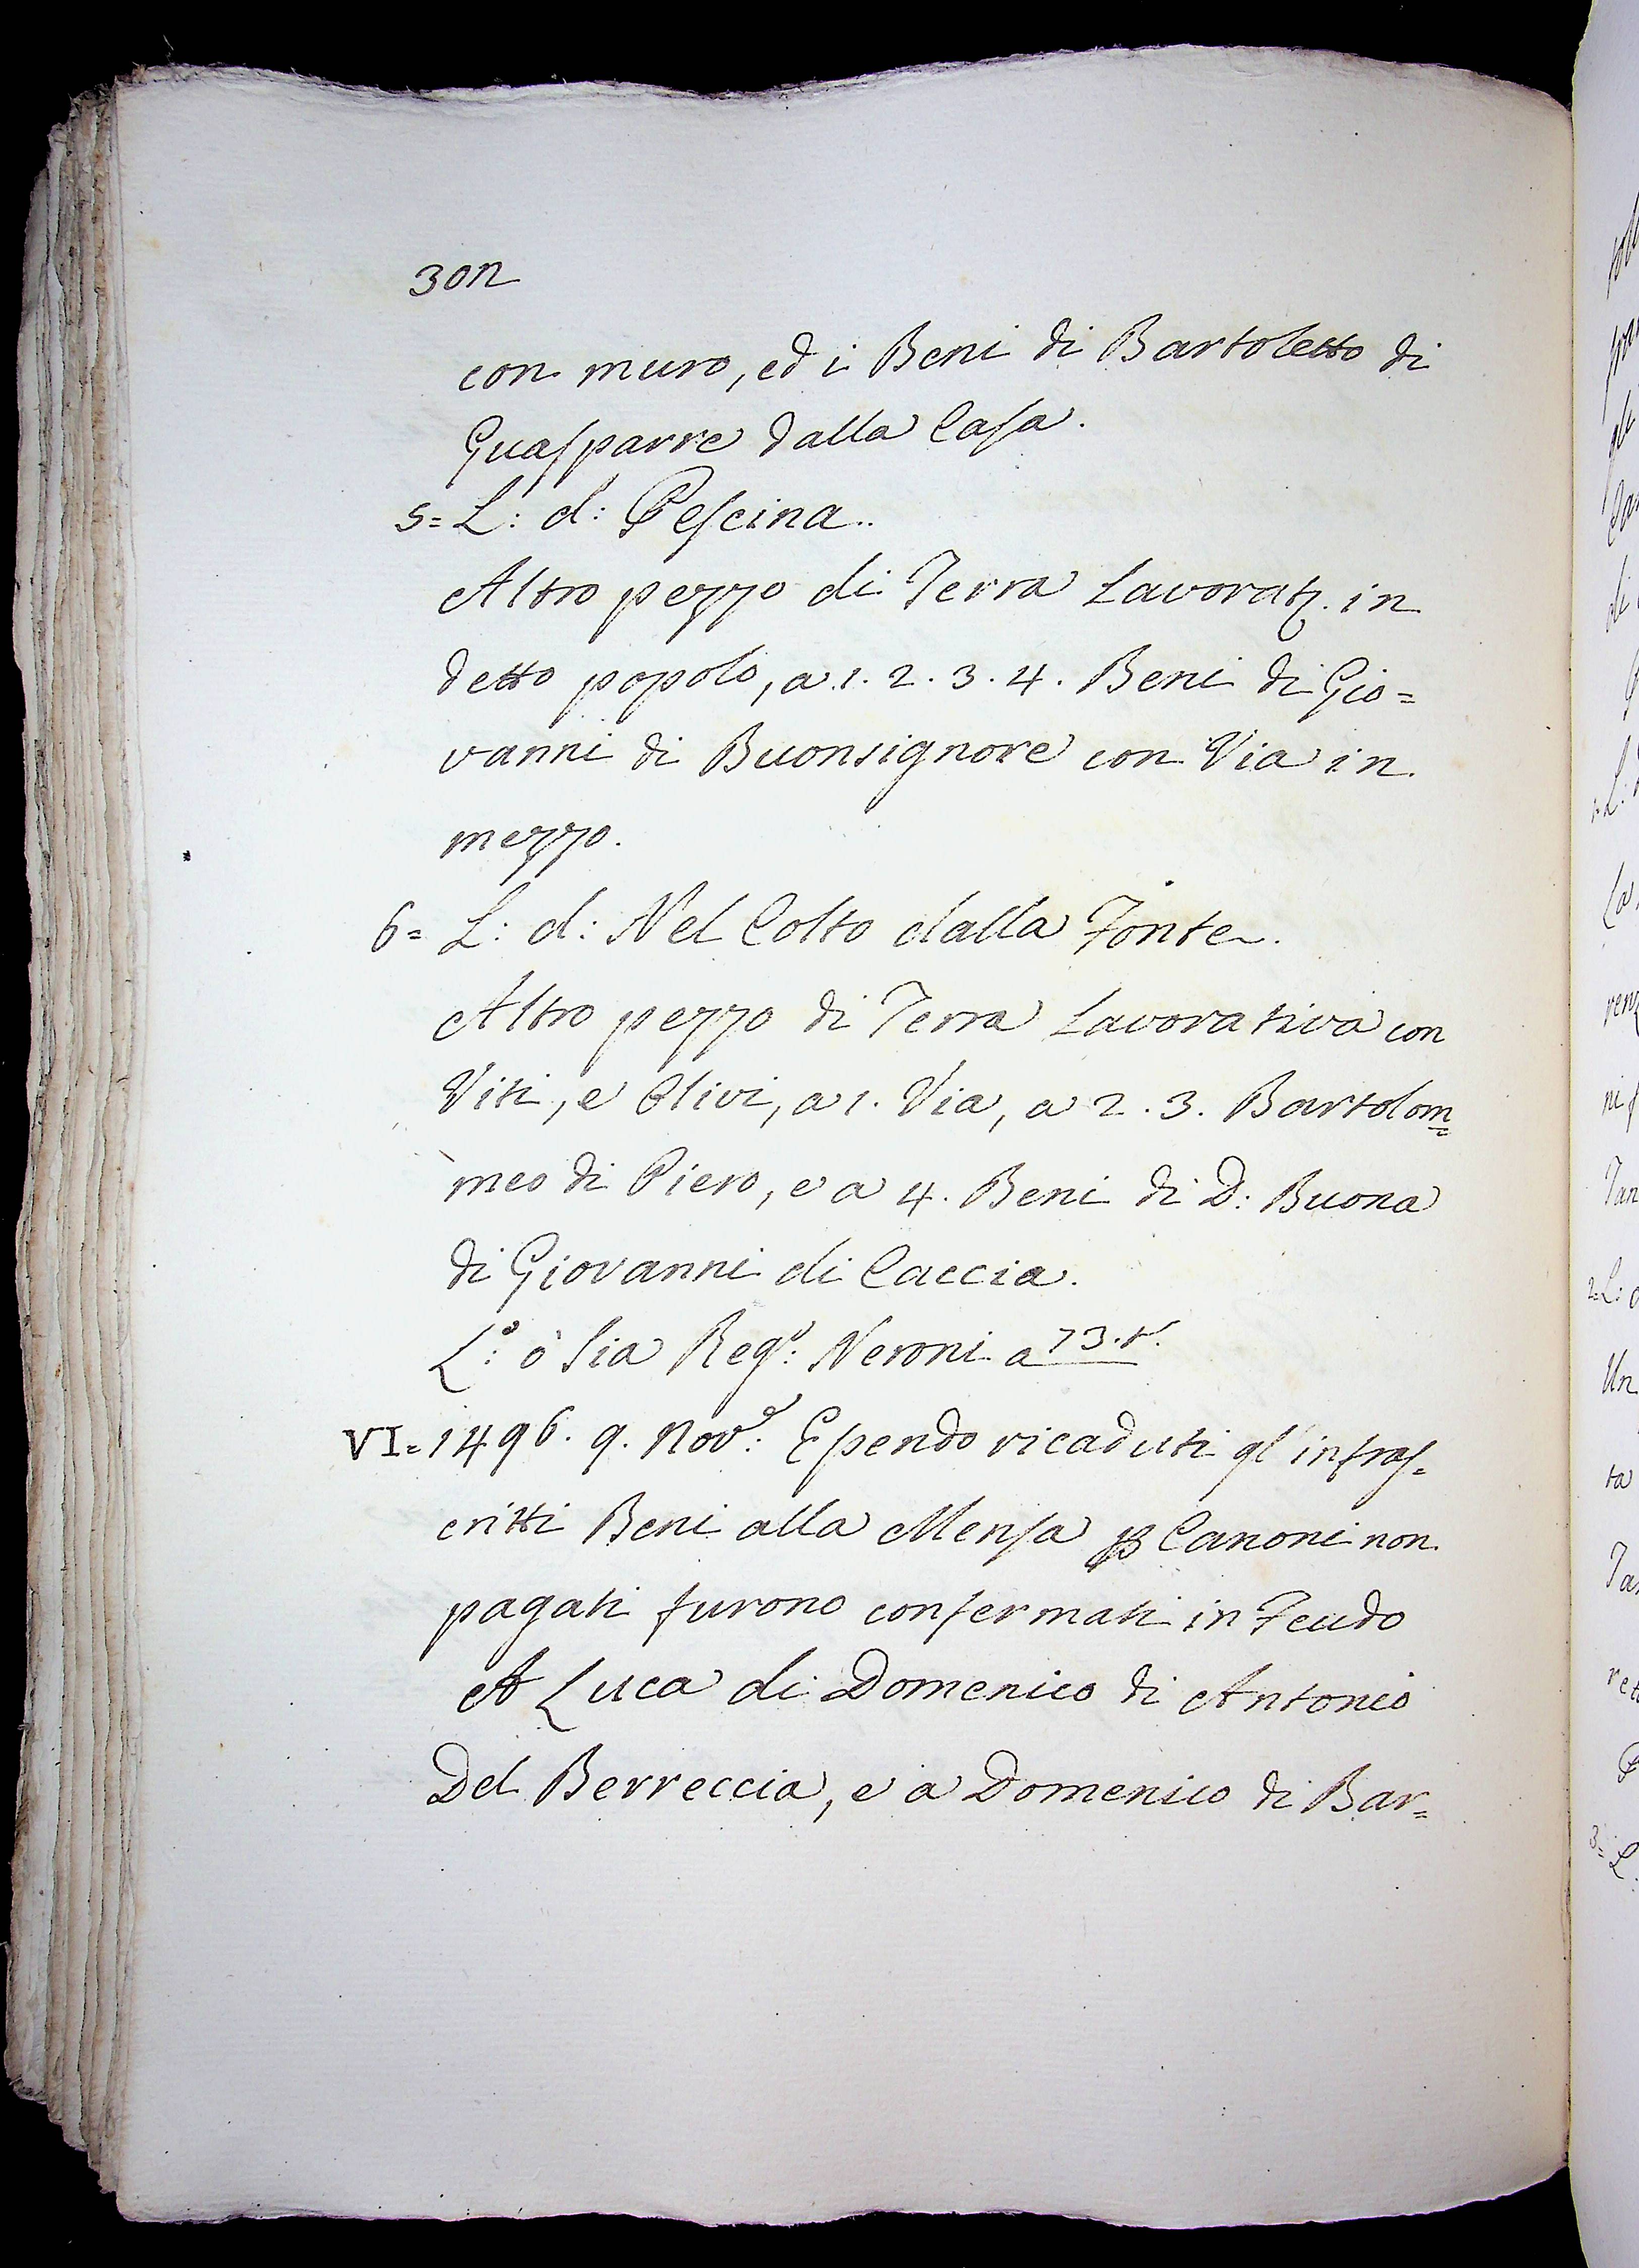 302
con muro, ed i Beni di Bartoletto di
Guasparre dalla Casa.
5= L: d: Pescina..
Altro pezzo di Terra Lavorat. in
detto popolo, a 1. 2. 3. 4. Beni di Gio=
vanni di Buonsignore con Via in
mezzo.
6= L: d: Nel Colto dalla Fonte.
Altro pezzo di Terra Lavorativa con
Viti, e Olivi, a 1. Via, a 2. 3. Bartolom=
meo di Piero, e a 4. Beni di D: Buona
di Giovanni di Caccia.
L:o ò sia Reg:o Neroni a 73. t.
VI= 1496. 9. Nov:e Essendo ricaduti gl'infras=
critti Beni alla Mensa p Canoni non
pagati furono confermati in Feudo
A Luca di Domenico di Antonio
Del Berreccia, e a Domenico di Bar=